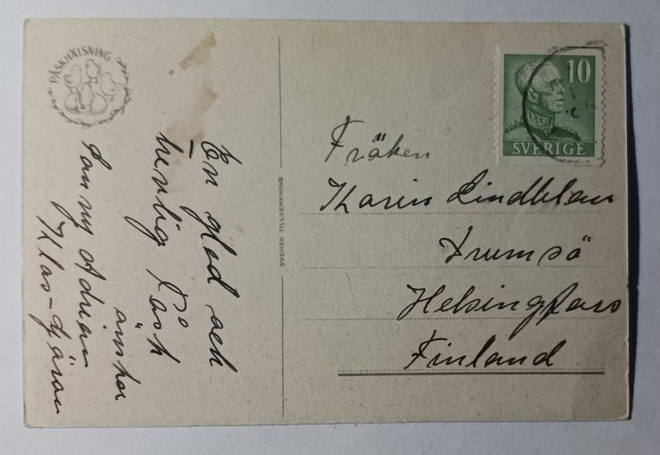 PÅSKHÄLSNING
En glad och
hevlig Påsk
önskar
Fanny Adrian
Klas-Göran
SVENSK TILLVERKNING
10
SVERIGE
Fröken
Karin Lindblom
Drumsö
Helsingfors
Finland